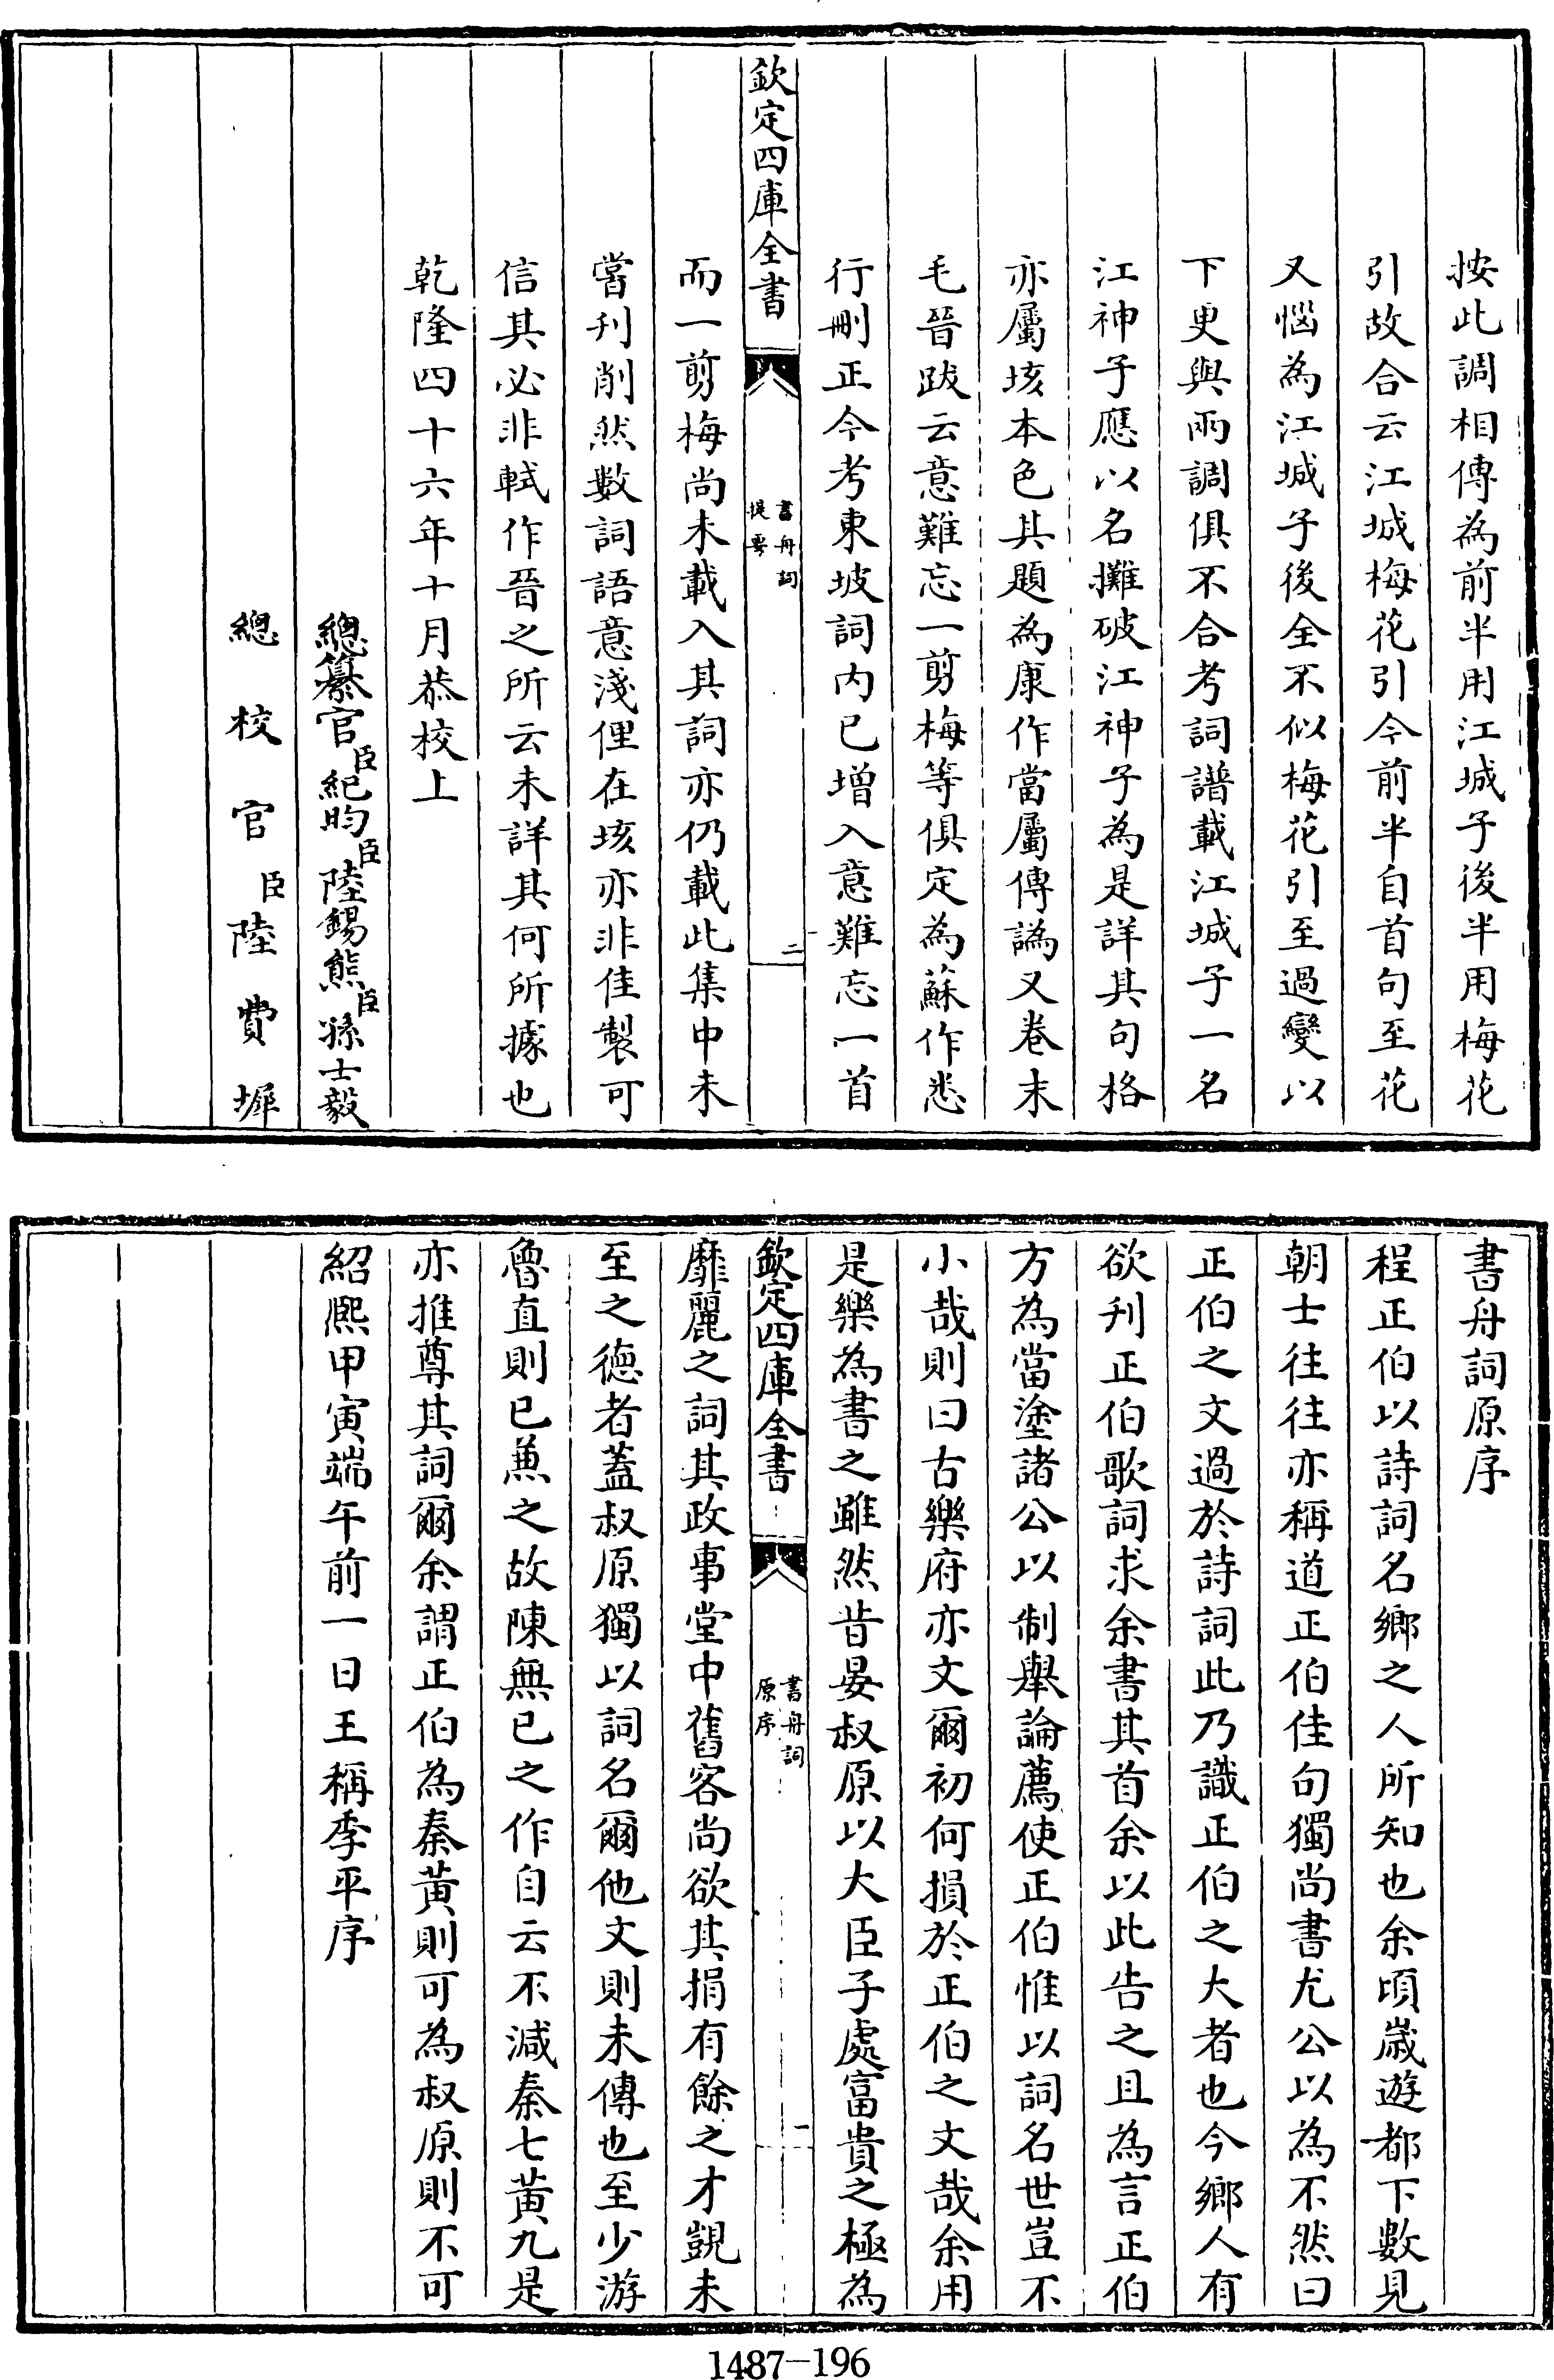 按此調相傳為前半用江城子後半用梅花
引故合云江城梅花引今前半自首句至花
又惱為江城子後全不似梅花引至過變以
下更與兩調俱不合考詞譜載江城子一名
江神子應以名攤破江神子為是詳其句格
亦屬垓本色其題為康作當屬傳譌又卷末
毛晉跋云意難忘一剪梅等俱定為蘇作悉
行刪正今考東坡詞內已增入意難忘一首
欽定四庫全書
書舟詞
提要
二
而一剪梅尚未載入其詞亦仍載此集中未
嘗刋削然數詞語意淺俚在垓亦非佳製可
信其必非軾作晉之所云未詳其何所據也
乾隆四十六年十月恭校上
總纂官臣紀昀臣陸錫熊臣孫士毅
總校官臣陸費墀
書舟詞原序
程正伯以詩詞名鄉之人所知也余頃歲遊都下數見
朝士往往亦稱道正伯佳句獨尚書尤公以為不然曰
正伯之文過於詩詞此乃識正伯之大者也今鄉人有
欲刋正伯歌詞求余書其首余以此告之且為言正伯
方為當塗諸公以制舉論薦使正伯惟以詞名世豈不
小哉則曰古樂府亦文爾初何損於正伯之文哉余用
是樂為書之雖然昔晏叔原以大臣子處富貴之極為
欽定四庫全書
書舟詞
原序
一
靡麗之詞其政事堂中舊客尚欲其捐有餘之才覬未
至之德者蓋叔原獨以詞名爾他文則未傳也至少游
魯直則已兼之故陳無已之作自云不減秦七黃九是
亦推尊其詞爾余謂正伯為秦黃則可為叔原則不可
紹熙甲寅端午前一日王稱季平序
1487-196